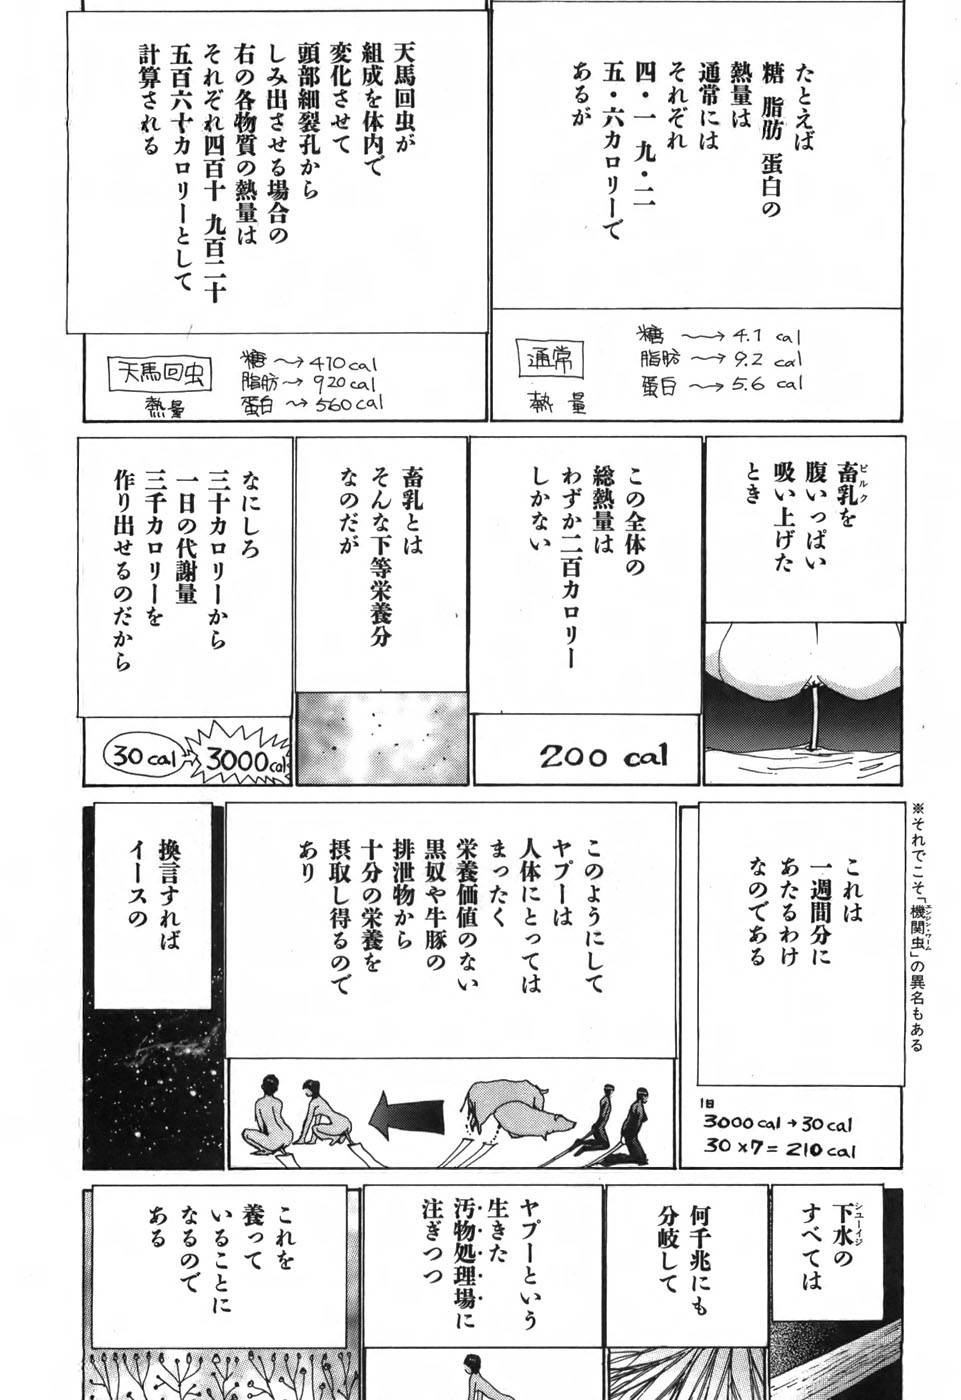 たとえば
糖 脂肪 蛋白の
熱量は
通常には
それぞれ
四・一 九・二
五・六カロリーで
あるが
通常
熱量
糖 〜→ 4.1 cal
脂肪 〜→ 9.2 cal
蛋白 〜→ 5.6 cal
天馬回虫が
組成を体内で
変化させて
頭部細裂孔から
しみ出させる場合の
右の各物質の熱量は
それぞれ四百十 九百二十
五百六十カロリーとして
計算される
天馬回虫
熱量
糖 〜→ 410 cal
脂肪 〜→ 920 cal
蛋白 〜→ 560 cal
畜乳を
ピルク
腹いっぱい
吸い上げた
とき
この全体の
総熱量は
わずか二百カロリー
しかない
200 cal
畜乳とは
そんな下等栄養分
なのだが
なにしろ
三十カロリーから
一日の代謝量
三千カロリーを
作り出せるのだから
30 cal → 3000 cal
※それでこそ「機関虫」の異名もある
エンジン・ワーム
これは
一週間分に
あたるわけ
なのである
1日
3000 cal → 30 cal
30 × 7 = 210 cal
このようにして
ヤプーは
人体にとっては
まったく
栄養価値のない
黒奴や牛豚の
排泄物から
十分の栄養を
摂取し得るので
あり
換言すれば
イースの
下水の
シューイジ
すべては
何千兆にも
分岐して
ヤプーという
生きた
汚物処理場に
注ぎつつ
これを
養って
いることに
なるので
ある